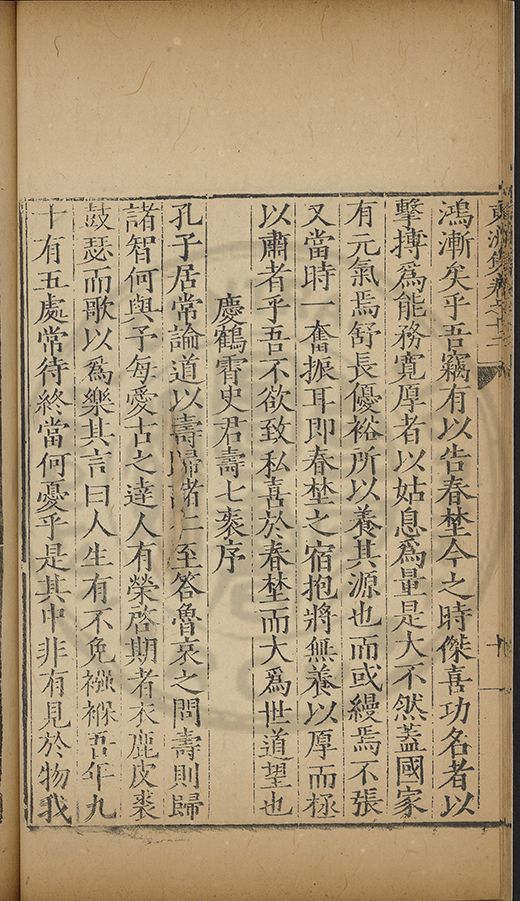 東洲集卷之十二
十
鴻漸矣乎吾竊有以告春埜今之時傑喜功名者以
擊搏爲能務寬厚者以姑息爲量是大不然蓋國家
有元氣焉舒長優裕所以養其源也而或縵焉不張
又當時一奮振耳即春埜之宿抱將無養以厚而極
以肅者乎吾不欲致私喜於春埜而大爲世道望也
慶鶴霄史君壽七袠序
孔子居常論道以壽歸諸仁至答魯哀之問壽則歸
諸智何與予每愛古之達人有榮啓期者衣鹿皮裘
鼓瑟而歌以爲樂其言曰人生有不免襁褓吾年九
十有五處常待終當何憂乎是其中非有見於物我